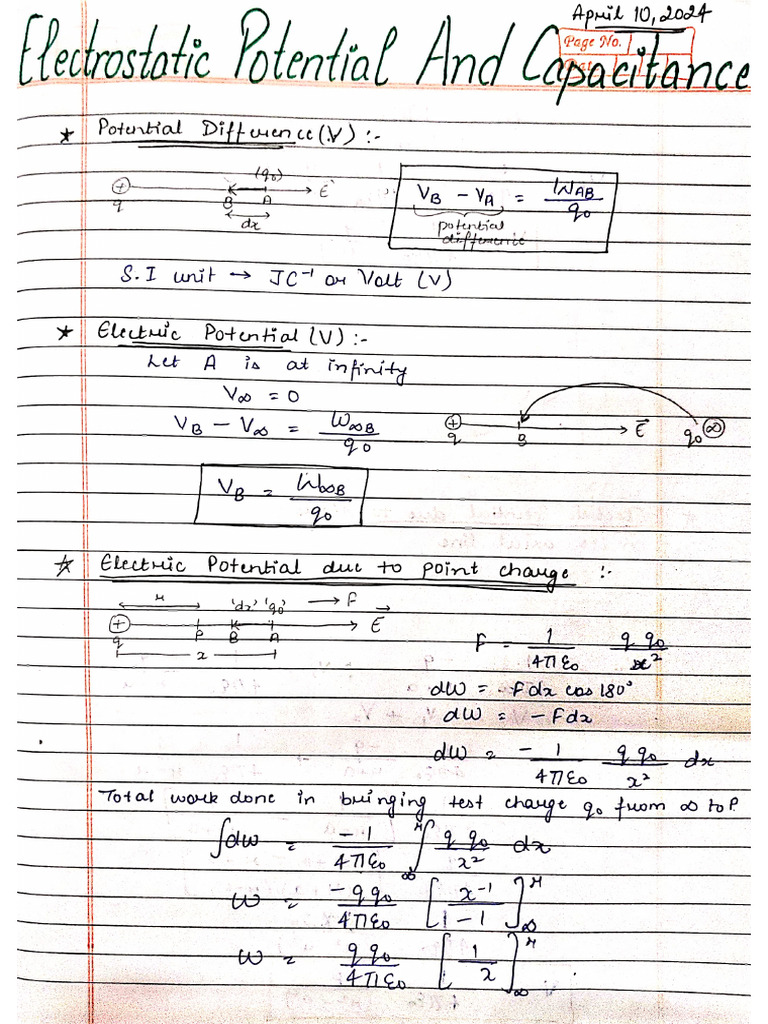 April 10, 2024
Page No.
Date
Electrostatic Potential And Capacitance
* Potential Difference (V) :-
(q₀)
+ q B A E
dx
V_B - V_A = W_AB / q₀
potential difference
S.I unit → JC⁻¹ or Volt (V)
* Electric Potential (V) :-
Let A is at infinity
V∞ = 0
V_B - V∞ = W∞B / q₀
+ q B E q₀ ∞
V_B = W∞B / q₀
* Electric Potential due to point charge :-
r 'dx' 'q₀' → F
+ q P B A E
x
F = 1/4πε₀ q q₀/x²
dW = -Fdx cos180°
dW = -Fdx
dW = -1/4πε₀ q q₀/x² dx
Total work done in bringing test charge q₀ from ∞ to P.
∫dW = -1/4πε₀ ∫_∞^r q q₀/x² dx
W = -q q₀/4πε₀ [x⁻¹/1-1]_∞^r
W = q q₀/4πε₀ [1/x]_∞^r